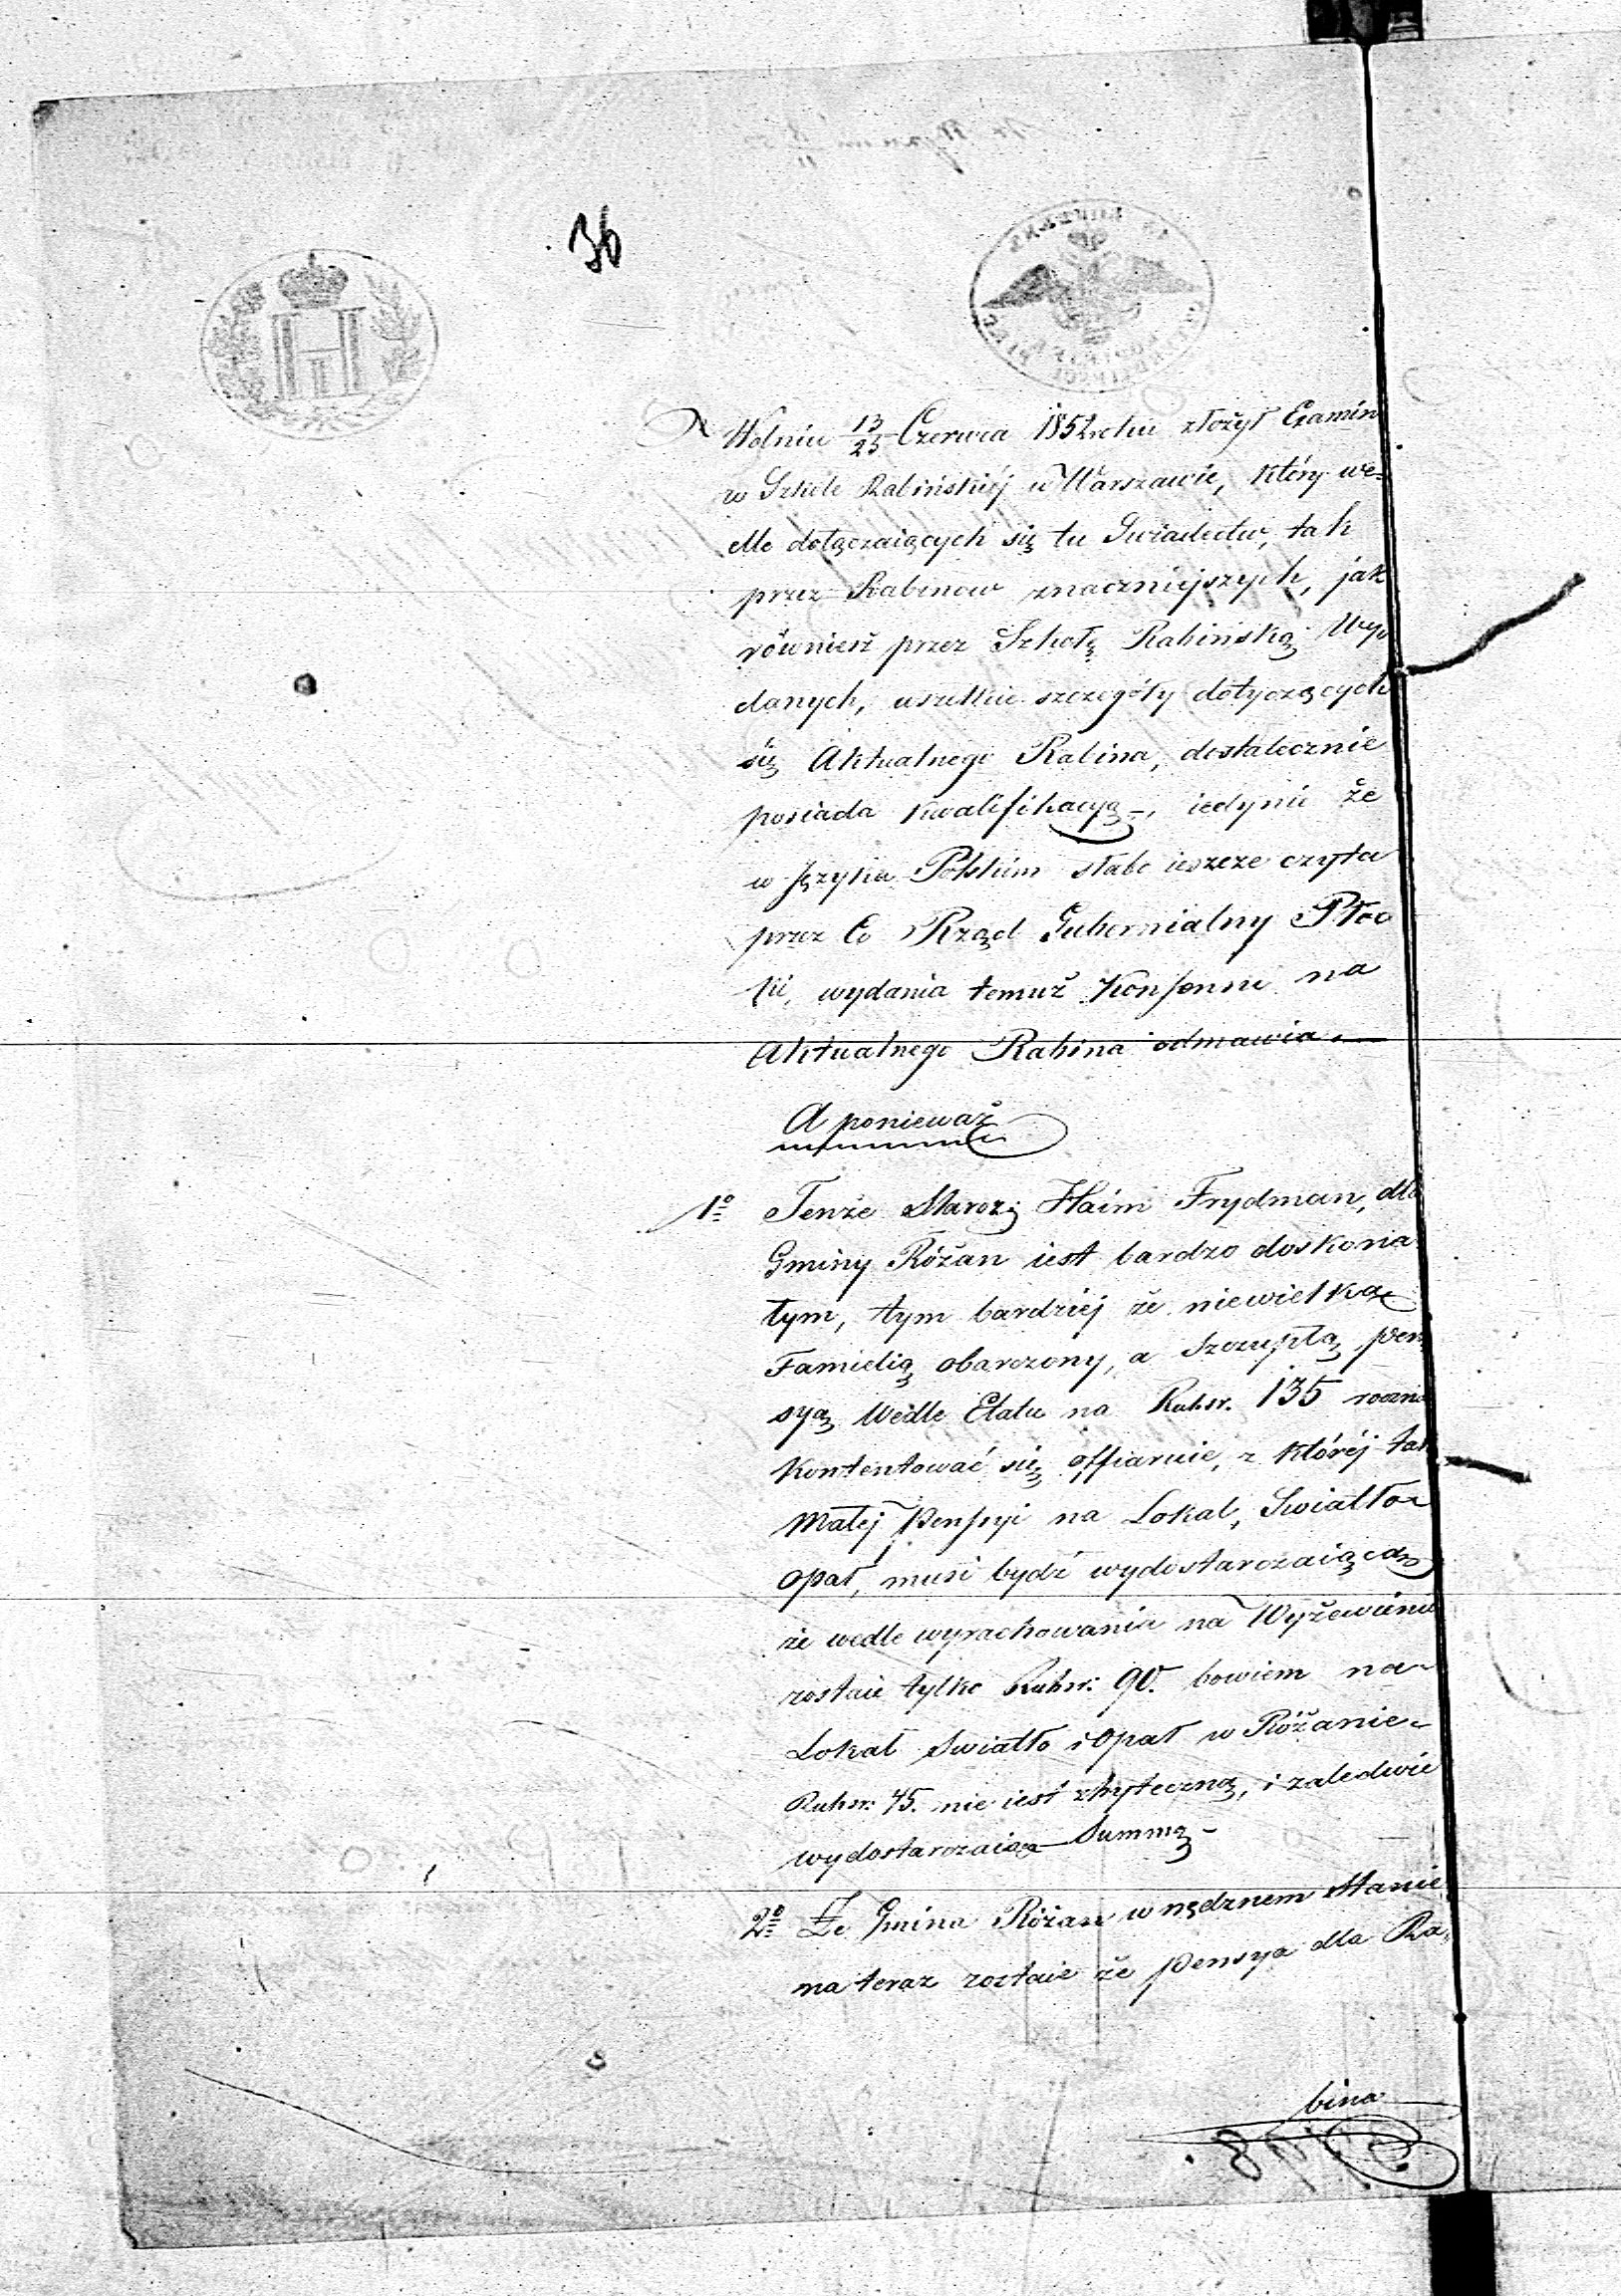 36
W dniu 13/25 Czerwca 1852 roku złożył Examin
w Szkole Rabińskiéj w Warszawie, który we-
dle dołączaiących się tu Swiadectw, tak
przez Rabinow znaczniejszych, jak
również przez Szkołę Rabińską wy-
danych, wszelkie szczegóły dotyczących
się Aktualnego Rabina, dostatecznie
posiada kwalifikacyą, iedynie że
w Języku Polskim słabo ieszcze czyta
przez Co Rząd Gubernialny Płoc
ki, wydania temuż Konsensu na
Aktualnego Rabina odmawia.
A ponieważ
1o Tenże Staroz: Haim Frydman, dla
Gminy Różan iest bardzo doskona
łym, tym bardziej że niewielką
Familią obarczony, a Szczupłą pen
syą Wedle Etatu na Rubsr. 135 roczn
kontentować się offiaruie, z któréj tak
małej Pensyi na Lokal, Swiatło
Opał, musi bydź wydostarczaiącą
że wedle wyrachowania na Wyżewienie
zostaie tylko Rubsr: 90. bowiem na
Lokal Swiatło i Opał w Różanie
Rubsr: 45. nie iest zbyteczną, i zaledwie
wydostarczaiąca Summą
2o Że Gmina Różan w nędznem Stanie
na teraz zostaie że pensya dla Ra-
bina